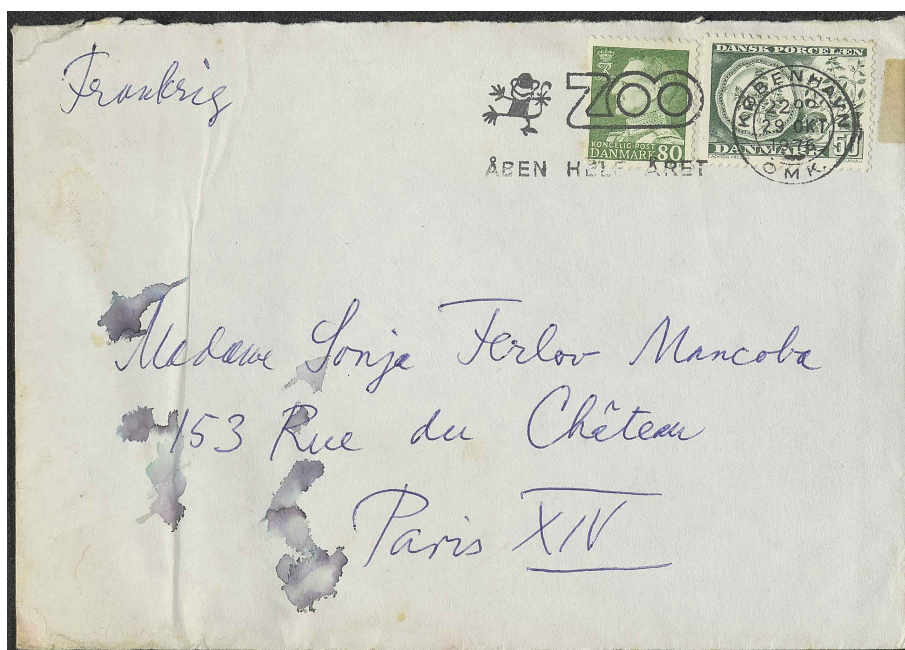 Frankrig
ZOO
ÅBEN HELE ÅRET
KONGELIG POST
DANMARK 80
DANSK PORCELÆN
DANMARK 50
KØBENHAVN
29 OKT
OMK.
Madame Sonja Ferlov Mancoba
153 Rue du Château
Paris XIV